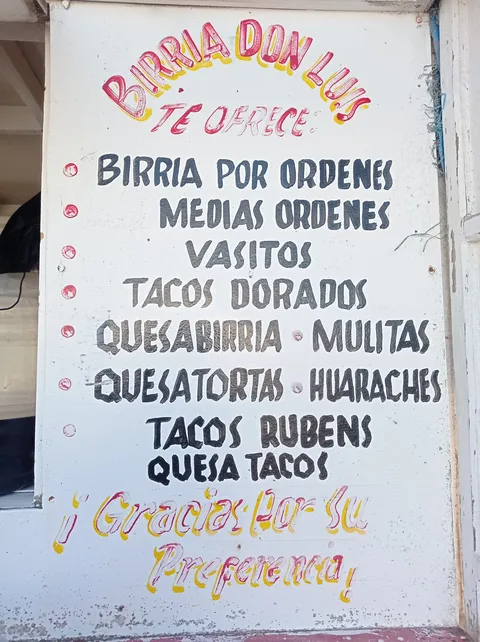 BIRRIA DON LUIS
TE OFRECE:
BIRRIA POR ORDENES
MEDIAS ORDENES
VASITOS
TACOS DORADOS
QUESABIRRIA • MULITAS
QUESATORTAS • HUARACHES
TACOS RUBENS
QUESA TACOS
¡Gracias Por Su
Preferencia!